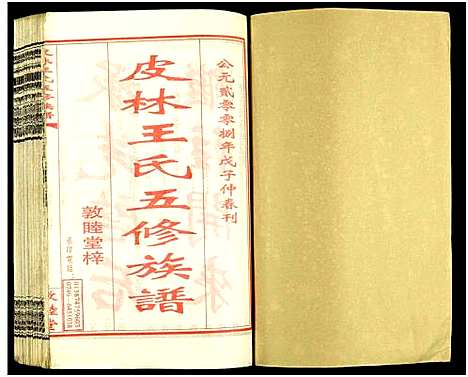 公元貳零零捌年戊子仲春刊
皮林王氏五修族譜
敦睦堂梓
敦睦堂